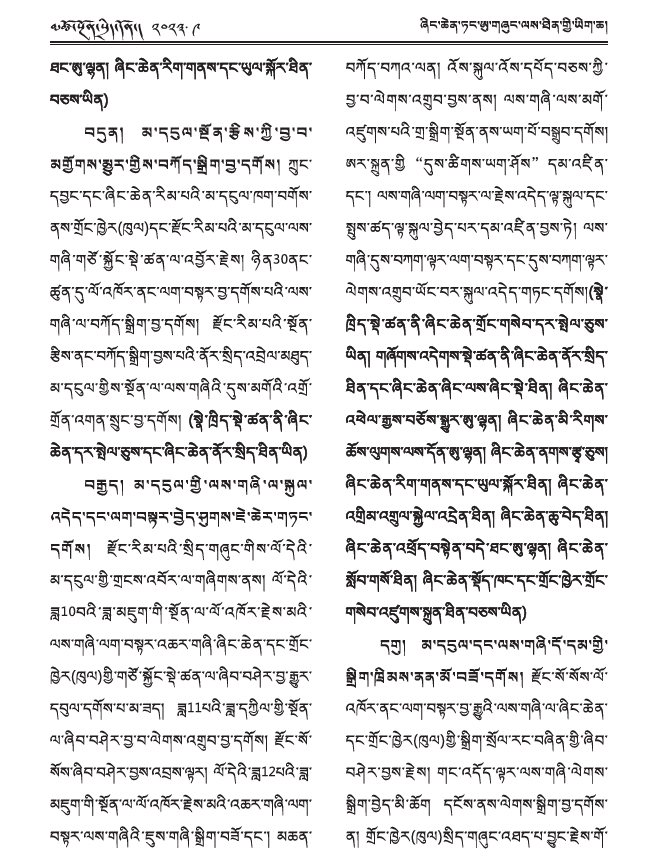 མཚོ་སྔོན་ཤིང་ཆེན ༢༠༢༥.༩
ཞིང་ཆེན་ཏང་ཨུ་གཞུང་ལས་ཐིན་གྱི་ཡིག་ཆ།
ཐང་ཨུ་ལྷན། ཞིང་ཆེན་རིག་གནས་དང་ཡུལ་སྐོར་ཐིན་
བཅས་ཡིན)
བདུན། མ་དངུལ་སྔོན་རྩིས་ཀྱི་བྱ་བ་
མགྱོགས་མྱུར་གྱིས་བཀོད་སྒྲིག་བྱ་དགོས། ཀྲུང་
དབྱང་དང་ཞིང་ཆེན་རིམ་པའི་མ་དངུལ་ཁག་བགོས་
ནས་གྲོང་ཁྱེར(ཁུལ)དང་རྫོང་རིམ་པའི་མ་དངུལ་ལས་
གཞི་གཙོ་སྐྱོང་སྡེ་ཚན་ལ་འབྱོར་རྗེས། ཉིན30ནང་
ཚུན་དུ་ལོ་འཁོར་ནང་ལག་བསྟར་བྱ་དགོས་པའི་ལས་
གཞི་ལ་བཀོད་སྒྲིག་བྱ་དགོས། རྫོང་རིམ་པའི་སྔོན་
རྩིས་ནང་བཀོད་སྒྲིག་བྱས་པའི་ནོར་སྲིད་འབྲེལ་མཐུད་
མ་དངུལ་གྱིས་སྔོན་ལ་ལས་གཞིའི་དུས་མགོའི་འགྲོ་
གྲོན་འགན་སྲུང་བྱ་དགོས། (སྣེ་ཁྲིད་སྡེ་ཚན་ནི་ཞིང་
ཆེན་དར་སྤེལ་ཅུས་དང་ཞིང་ཆེན་ནོར་སྲིད་ཐིན་ཡིན)
བརྒྱད། མ་དངུལ་གྱི་ལས་གཞི་ལ་སྐུལ་
འདེད་དང་ལག་བསྟར་བྱེད་ཤུགས་ཇེ་ཆེར་གཏང་
དགོས། རྫོང་རིམ་པའི་སྲིད་གཞུང་གིས་ལོ་དེའི་
མ་དངུལ་གྱི་གྲངས་འབོར་ལ་གཞིགས་ནས། ལོ་དེའི་
ཟླ10བའི་ཟླ་མཇུག་གི་སྔོན་ལ་ལོ་འཁོར་རྗེས་མའི་
ལས་གཞི་ལག་བསྟར་འཆར་གཞི་ཞིང་ཆེན་དང་གྲོང་
ཁྱེར(ཁུལ)གྱི་གཙོ་སྐྱོང་སྡེ་ཚན་ལ་ཞིབ་བཤེར་བྱ་རྒྱུར་
དབུལ་དགོས་པ་མ་ཟད། ཟླ11པའི་ཟླ་དཀྱིལ་གྱི་སྔོན་
ལ་ཞིབ་བཤེར་བྱ་བ་ལེགས་འགྲུབ་བྱ་དགོས། རྫོང་སོ་
སོས་ཞིབ་བཤེར་བྱས་འབྲས་ལྟར། ལོ་དེའི་ཟླ12པའི་ཟླ་
མཇུག་གི་སྔོན་ལ་ལོ་འཁོར་རྗེས་མའི་འཆར་གཞི་ལག་
བསྟར་ལས་གཞིའི་ཇུས་གཞི་སྒྲིག་བཟོ་དང་། མཆན་
བཀོད་བཀའ་ལན། འོས་སྐུལ་འོས་དཔོད་བཅས་ཀྱི་
བྱ་བ་ལེགས་འགྲུབ་བྱས་ནས། ལས་གཞི་ལས་མགོ་
འཛུགས་པའི་གྲ་སྒྲིག་སྔོན་ནས་ཡག་པོ་བསྒྲུབ་དགོས།
ཨར་སྐྲུན་གྱི “དུས་ཚིགས་ཡག་ཤོས” དམ་འཛིན་
དང་། ལས་གཞི་ལག་བསྟར་ལ་རྗེས་འདེད་ལྟ་སྐུལ་དང་
སྤུས་ཚད་ལྟ་སྐུལ་བྱེད་པར་དམ་འཛིན་བྱས་ཏེ། ལས་
གཞི་དུས་བཀག་ལྟར་ལག་བསྟར་དང་དུས་བཀག་ལྟར་
ལེགས་འགྲུབ་ཡོང་བར་སྐུལ་འདེད་གཏང་དགོས།(སྣེ་
ཁྲིད་སྡེ་ཚན་ནི་ཞིང་ཆེན་གྲོང་གསེབ་དར་སྤེལ་ཅུས་
ཡིན། གཞོགས་འདེགས་སྡེ་ཚན་ནི་ཞིང་ཆེན་ནོར་སྲིད་
ཐིན་དང་ཞིང་ཆེན་ཞིང་ལས་ཞིང་སྡེ་ཐིན། ཞིང་ཆེན་
འཕེལ་རྒྱས་བཅོས་སྒྱུར་ཨུ་ལྷན། ཞིང་ཆེན་མི་རིགས་
ཆོས་ལུགས་ལས་དོན་ཨུ་ལྷན། ཞིང་ཆེན་ནགས་རྩྭ་ཅུས།
ཞིང་ཆེན་རིག་གནས་དང་ཡུལ་སྐོར་ཐིན། ཞིང་ཆེན་
འགྲིམ་འགྲུལ་སྐྱེལ་འདྲེན་ཐིན། ཞིང་ཆེན་ཆུ་བེད་ཐིན།
ཞིང་ཆེན་འཕྲོད་བསྟེན་བདེ་ཐང་ཨུ་ལྷན། ཞིང་ཆེན་
སློབ་གསོ་ཐིན། ཞིང་ཆེན་སྡོད་ཁང་དང་གྲོང་ཁྱེར་གྲོང་
གསེབ་འཛུགས་སྐྲུན་ཐིན་བཅས་ཡིན)
དགུ། མ་དངུལ་དང་ལས་གཞི་དོ་དམ་གྱི་
སྒྲིག་ཁྲིམས་ནན་མོ་བཟོ་དགོས། རྫོང་སོ་སོས་ལོ་
འཁོར་ནང་ལག་བསྟར་བྱ་རྒྱུའི་ལས་གཞི་ལ་ཞིང་ཆེན་
དང་གྲོང་ཁྱེར(ཁུལ)གྱི་སྒྲིག་སྲོལ་རང་བཞིན་གྱི་ཞིབ་
བཤེར་བྱས་རྗེས། གང་འདོད་ལྟར་ལས་གཞི་ལེགས་
སྒྲིག་བྱེད་མི་ཆོག དངོས་ནས་ལེགས་སྒྲིག་བྱ་དགོས་
ན། གྲོང་ཁྱེར(ཁུལ)སྲིད་གཞུང་འཐད་པ་བྱུང་རྗེས་གོ་